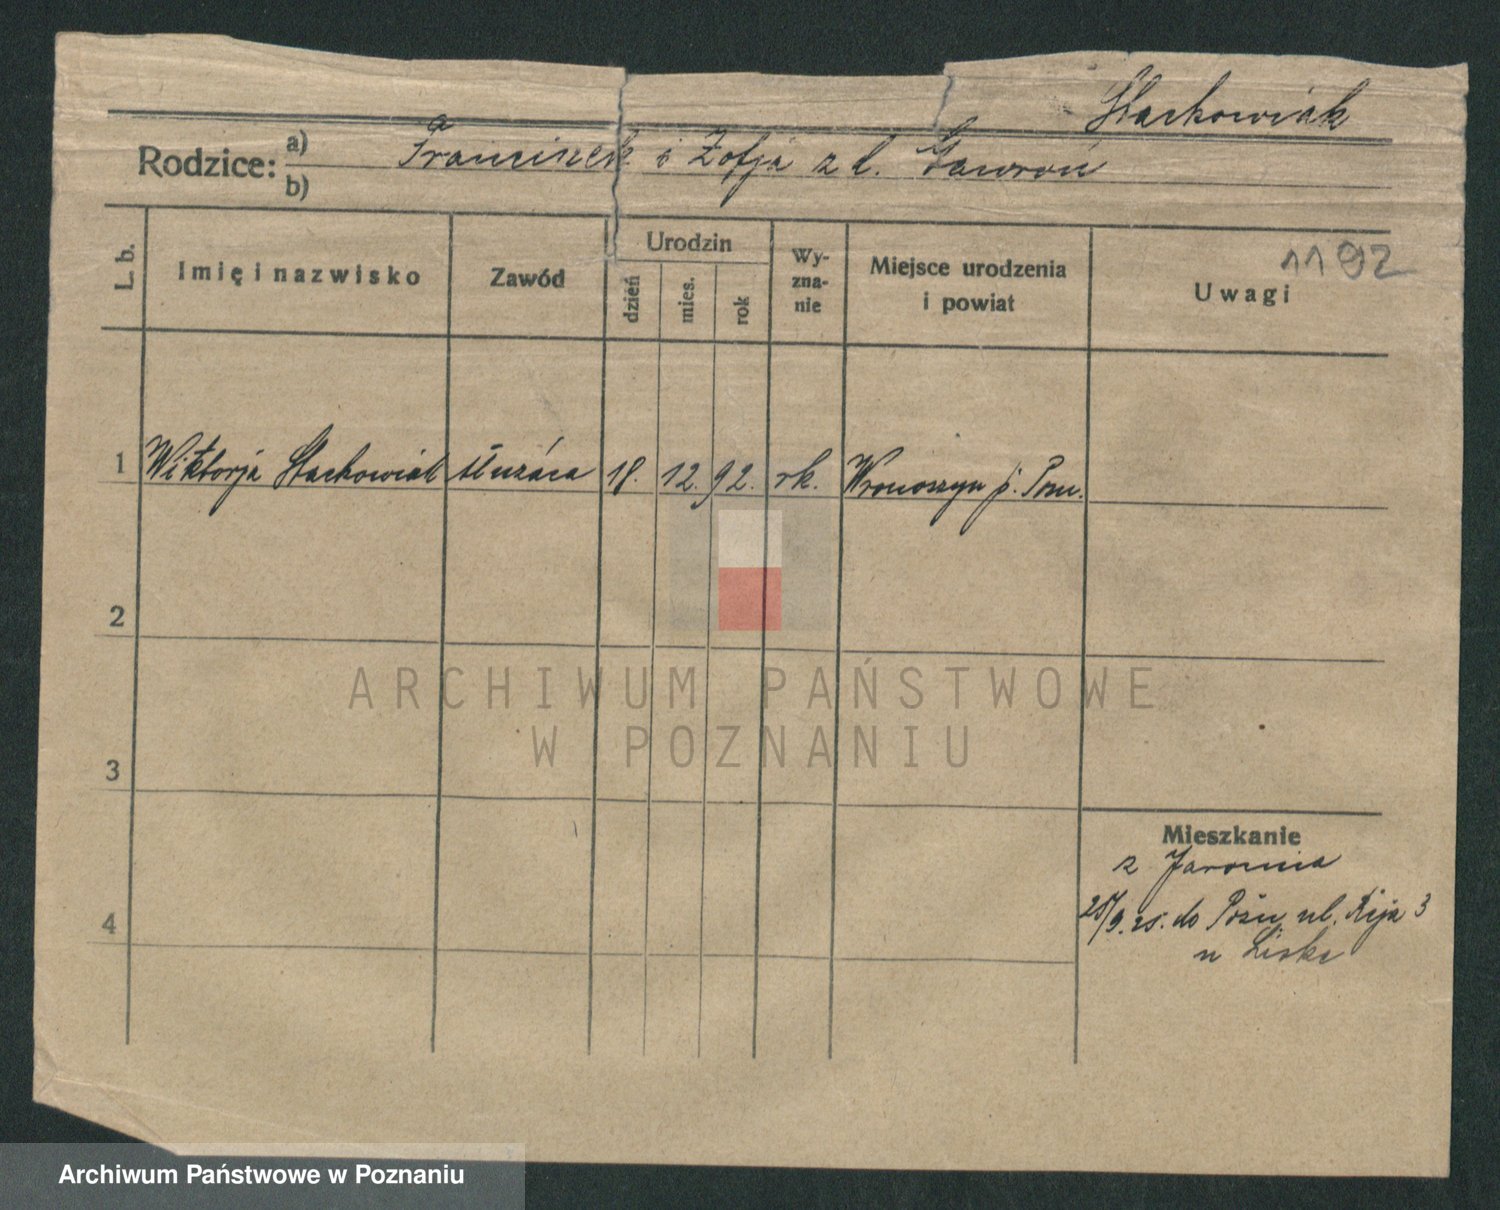 Stachowiak
Rodzice: a) Franciszek i Zofja z d. Gawroń
b)
L. b. Imię i nazwisko Zawód Urodzin dzień mies. rok Wyznanie Miejsce urodzenia i powiat Uwagi 1192
1 Wiktorja Stachowiak służąca 18. 12. 92. rk. Wronczyn p. Pozn.
2
3
4
Mieszkanie
z
25/9. 25. do Pozn. ul. 3
u
ARCHIWUM PAŃSTWOWE
W POZNANIU
Archiwum Państwowe w Poznaniu